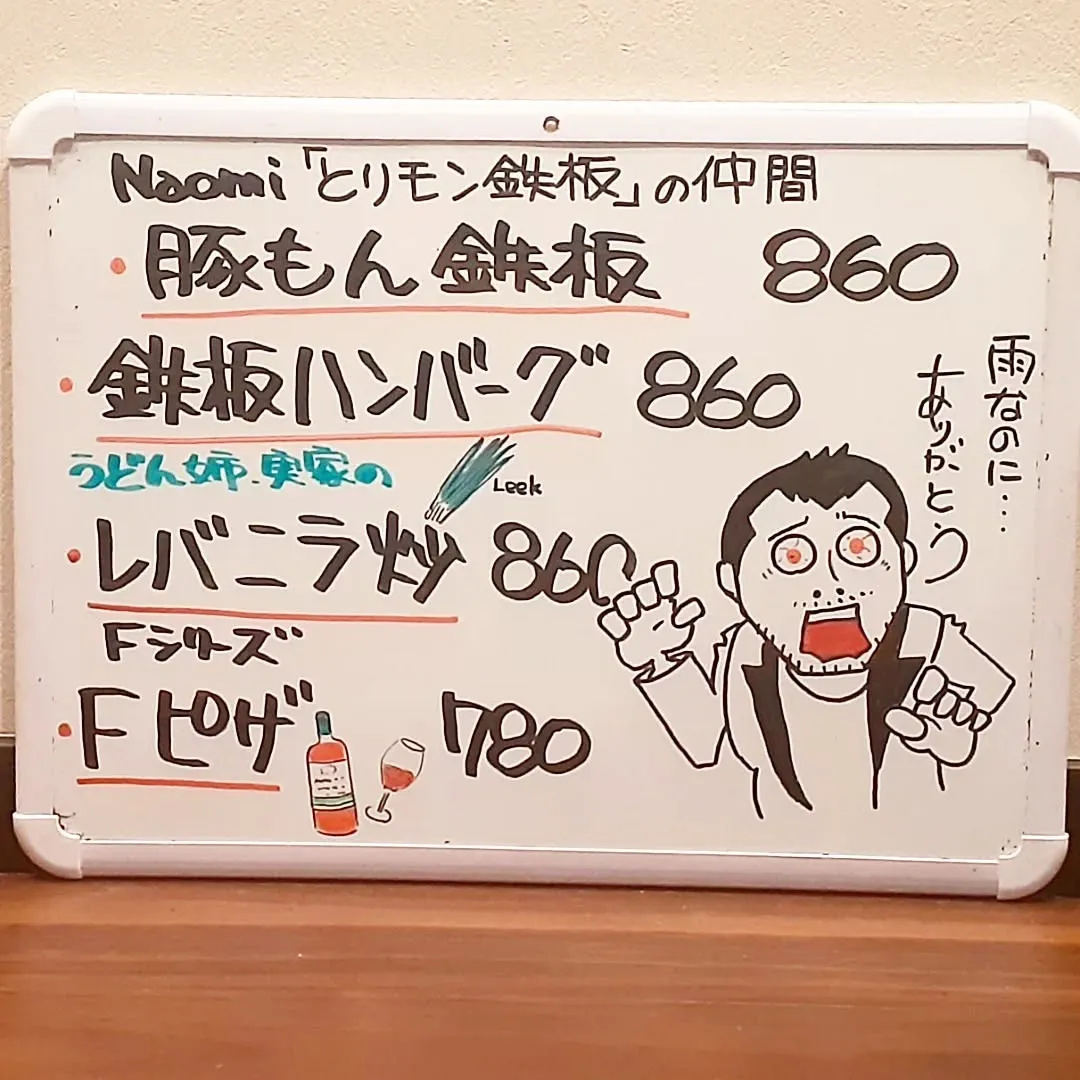 Naomi「とりモン鉄板」の仲間
・豚もん鉄板 860
・鉄板ハンバーグ 860
うどん姉.実家の
Leek
・レバニラ炒 860
Fシリーズ
・Fピザ 780
雨なのに…
ありがとう